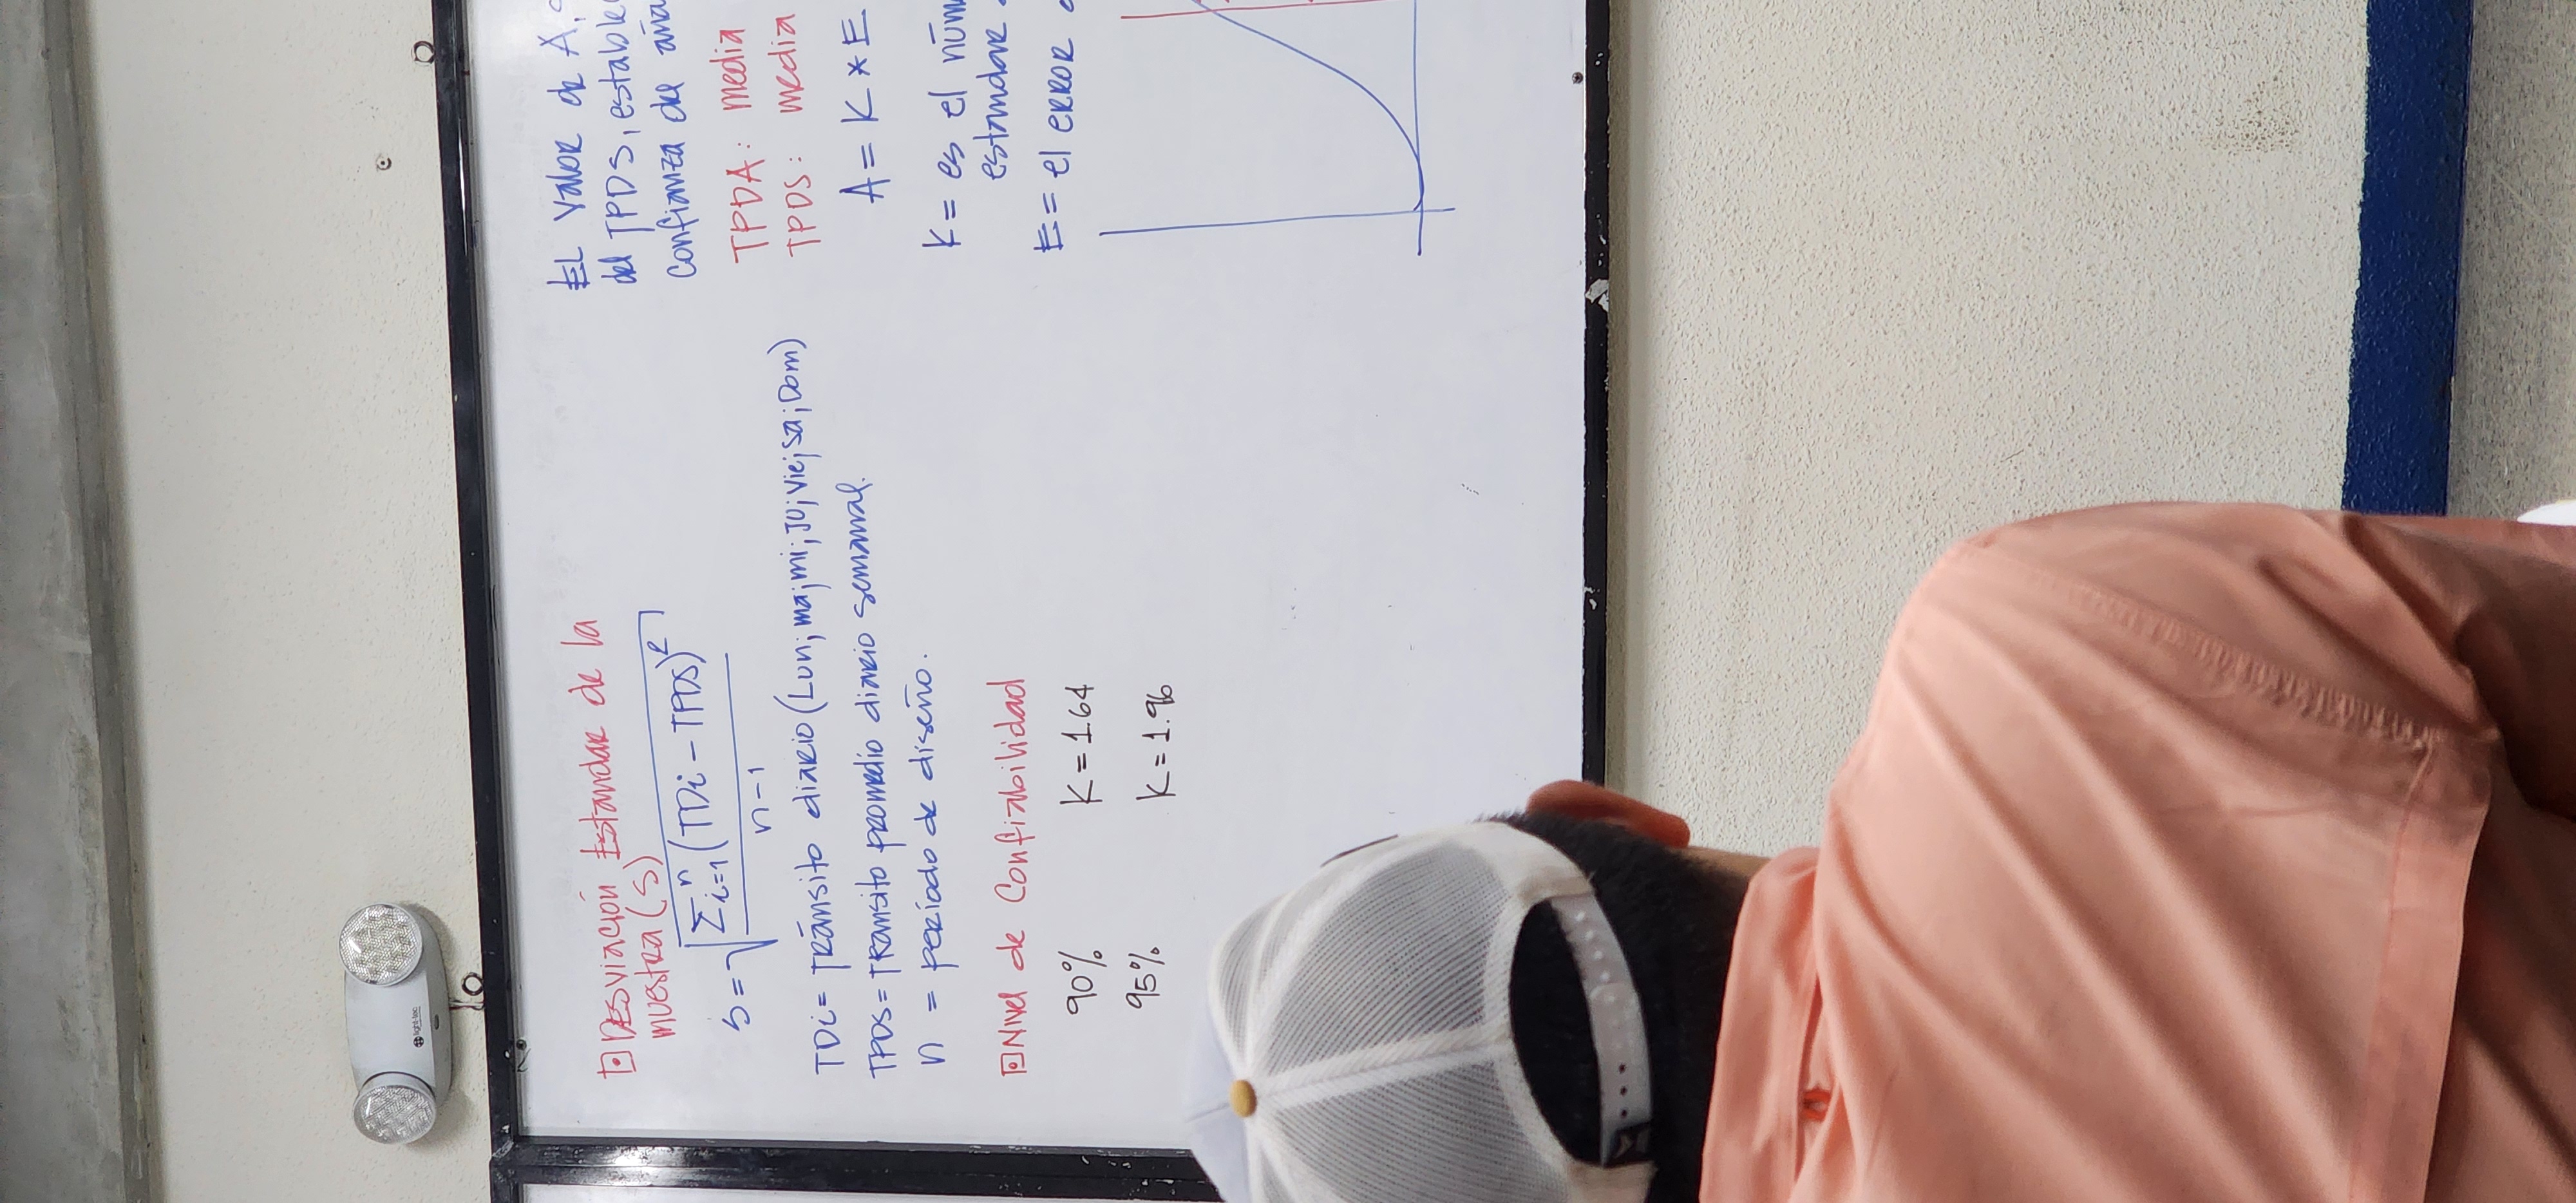 light-tec
⊡ Desviación Estandar de la
muestra (S)
S = √ Σ i=1 n (TDi - TPDS)²
n-1
TDi = Tránsito diario (Lun; ma; mi; Ju; Vie; Sa; Dom)
TPDS = Transito promedio diario semanal.
n = período de diseño.
⊡ Nivel de Confiabilidad
90% K = 1.64
95% K = 1.96
El valor de A,
del TPDS, estable
confianza de aña
TPDA: media
TPDS: media
A = K * E
K = es el núm
estandar
E = el error